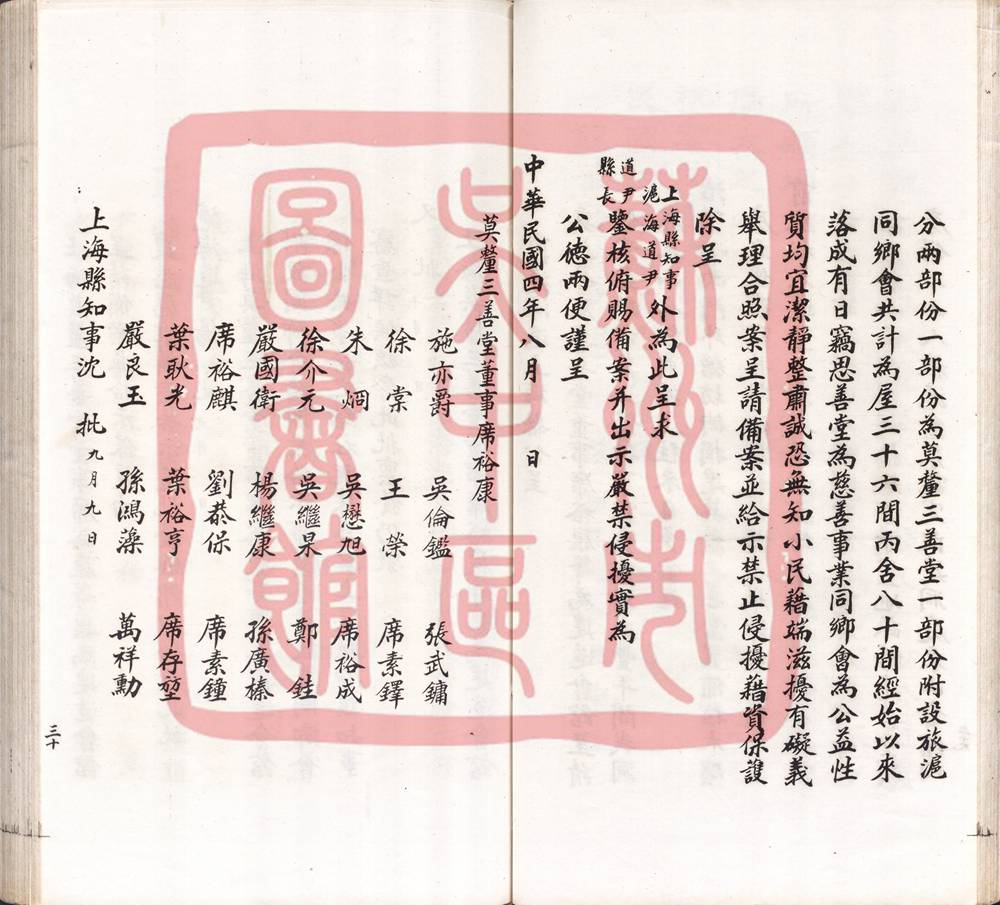 分兩部份一部份為莫釐三善堂一部份附設旅滬
同鄉會共計為屋三十六間丙舍八十間經始以來
落成有日竊思善堂為慈善事業同鄉會為公益性
質均宜潔靜整肅誠恐無知小民藉端滋擾有礙義
舉理合照案呈請備案並給示禁止侵擾藉資保護
除呈
上海縣知事
滬海道尹
外為此呈求
道尹
縣長
鑒核俯賜備案并出示嚴禁侵擾實為
公德兩便謹呈
中華民國四年八月 日
莫釐三善堂董事席裕康
施亦爵 吳倫鑑 張武鏞
徐棠 王榮 席素鐸
朱炯 吳懋旭 席裕成
徐介元 吳繼杲 鄭銈
嚴國衛 楊繼康 孫廣榛
席裕麒 劉恭保 席素鍾
葉耿光 葉裕亨 席存堃
嚴良玉 孫鴻藻 萬祥勳
上海縣知事沈 批 九月九日
三十
蘇州市
吳中區
圖書館